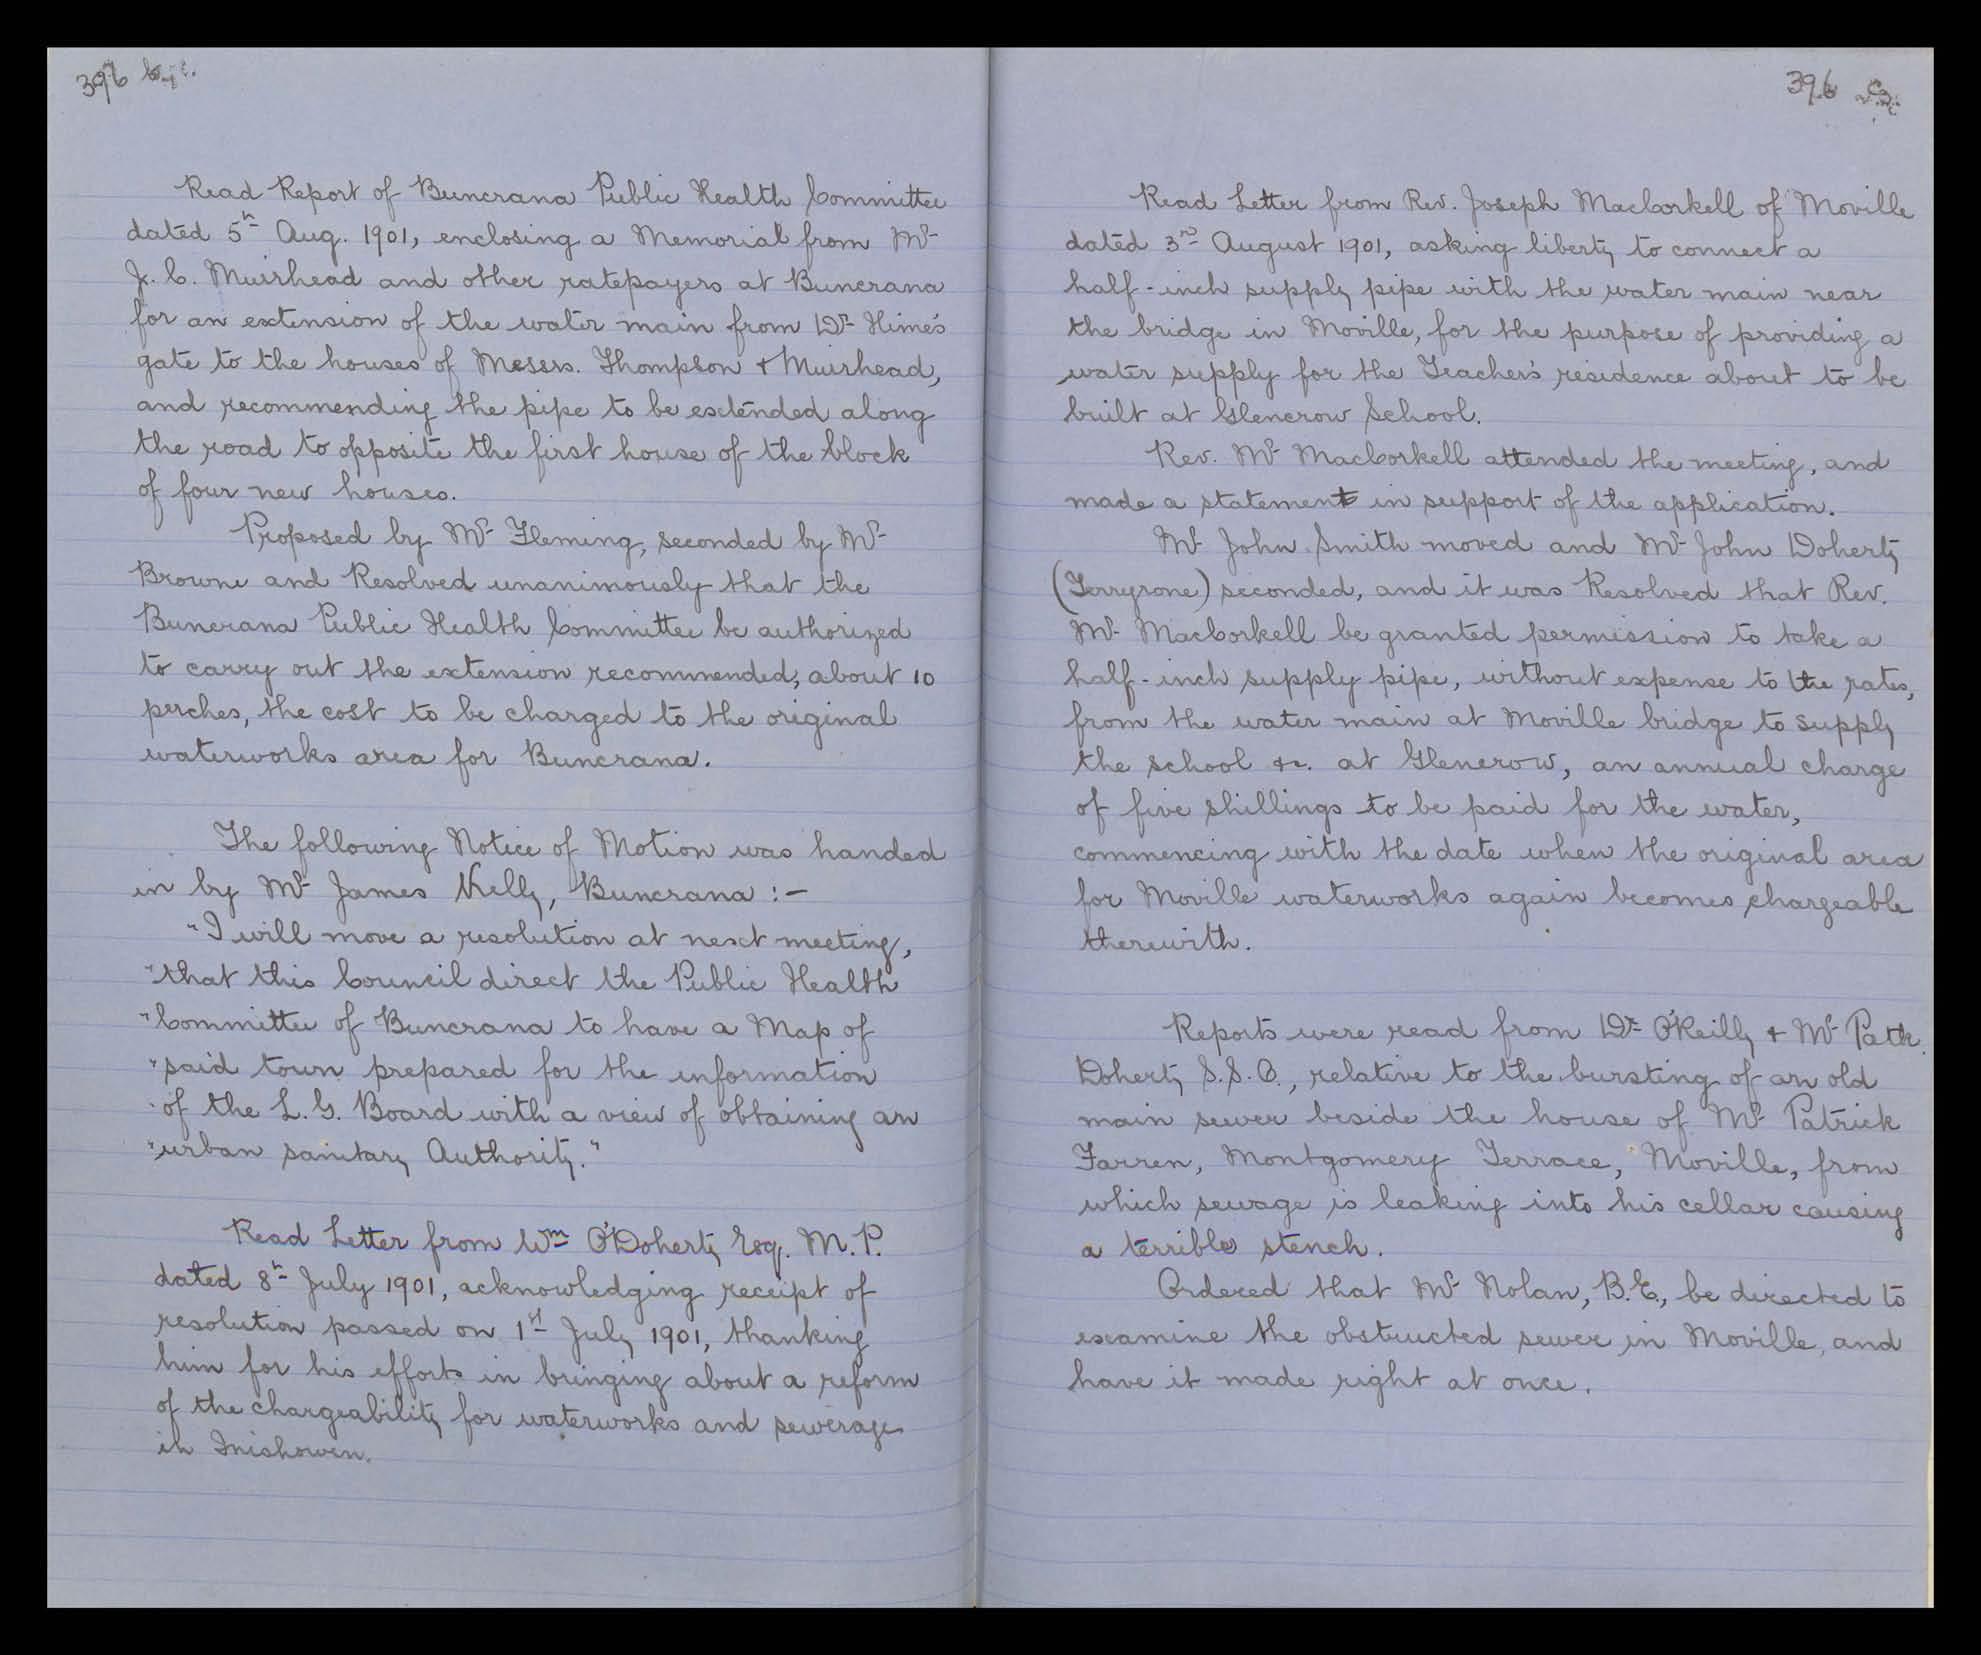 396
Read Report of Buncrana Public Health Committee
dated 5h Aug. 1901, enclosing a Memorial from Mr
J. C. Muirhead and other ratepayers at Buncrana
for an extension of the water main from Dr Hime's
gate to the houses of Messrs. Thompson & Muirhead,
and recommending the pipe to be extended along
the road to opposite the first house of the block
of four new houses.
Proposed by Mr Fleming, seconded by Mr
Browne and Resolved unanimously that the
Buncrana Public Health Committee be authorized
to carry out the extension recommended, about 10
perches, the cost to be charged to the original
waterworks area for Buncrana.
The following Notice of Motion was handed
in by Mr James Kelly, Buncrana :-
"I will move a resolution at next meeting,
"that this Council direct the Public Health
"Committee of Buncrana to have a Map of
"said town prepared for the information
"of the L. G. Board with a view of obtaining an
"urban sanitary Authority."
Read Letter from Wm O'Doherty Esq. M. P.
dated 8h July 1901, acknowledging receipt of
resolution passed on 1st July 1901, thanking
him for his efforts in bringing about a reform
of the chargeability for waterworks and sewerage
in Inishowen.
396
Read Letter from Rev. Joseph MacCorkell of Moville
dated 3rd August 1901, asking liberty to connect a
half-inch supply pipe with the water main near
the bridge in Moville, for the purpose of providing a
water supply for the Teacher's residence about to be
built at Glencrow School.
Rev. Mr MacCorkell attended the meeting, and
made a statement in support of the application.
Mr John Smith moved and Mr John Doherty
(Terryrone) seconded, and it was Resolved that Rev.
Mr MacCorkell be granted permission to take a
half-inch supply pipe, without expense to the rates,
from the water main at Moville bridge to supply
the school &c. at Glencrow, an annual charge
of five shillings to be paid for the water,
commencing with the date when the original area
for Moville waterworks again becomes chargeable
therewith.
Reports were read from Dr O'Reilly & Mr Patk.
Doherty S.S.O., relative to the bursting of an old
main sewer beside the house of Mr Patrick
Farren, Montgomery Terrace, Moville, from
which sewage is leaking into his cellar causing
a terrible stench.
Ordered that Mr Nolan, B.E., be directed to
examine the obstructed sewer in Moville, and
have it made right at once.